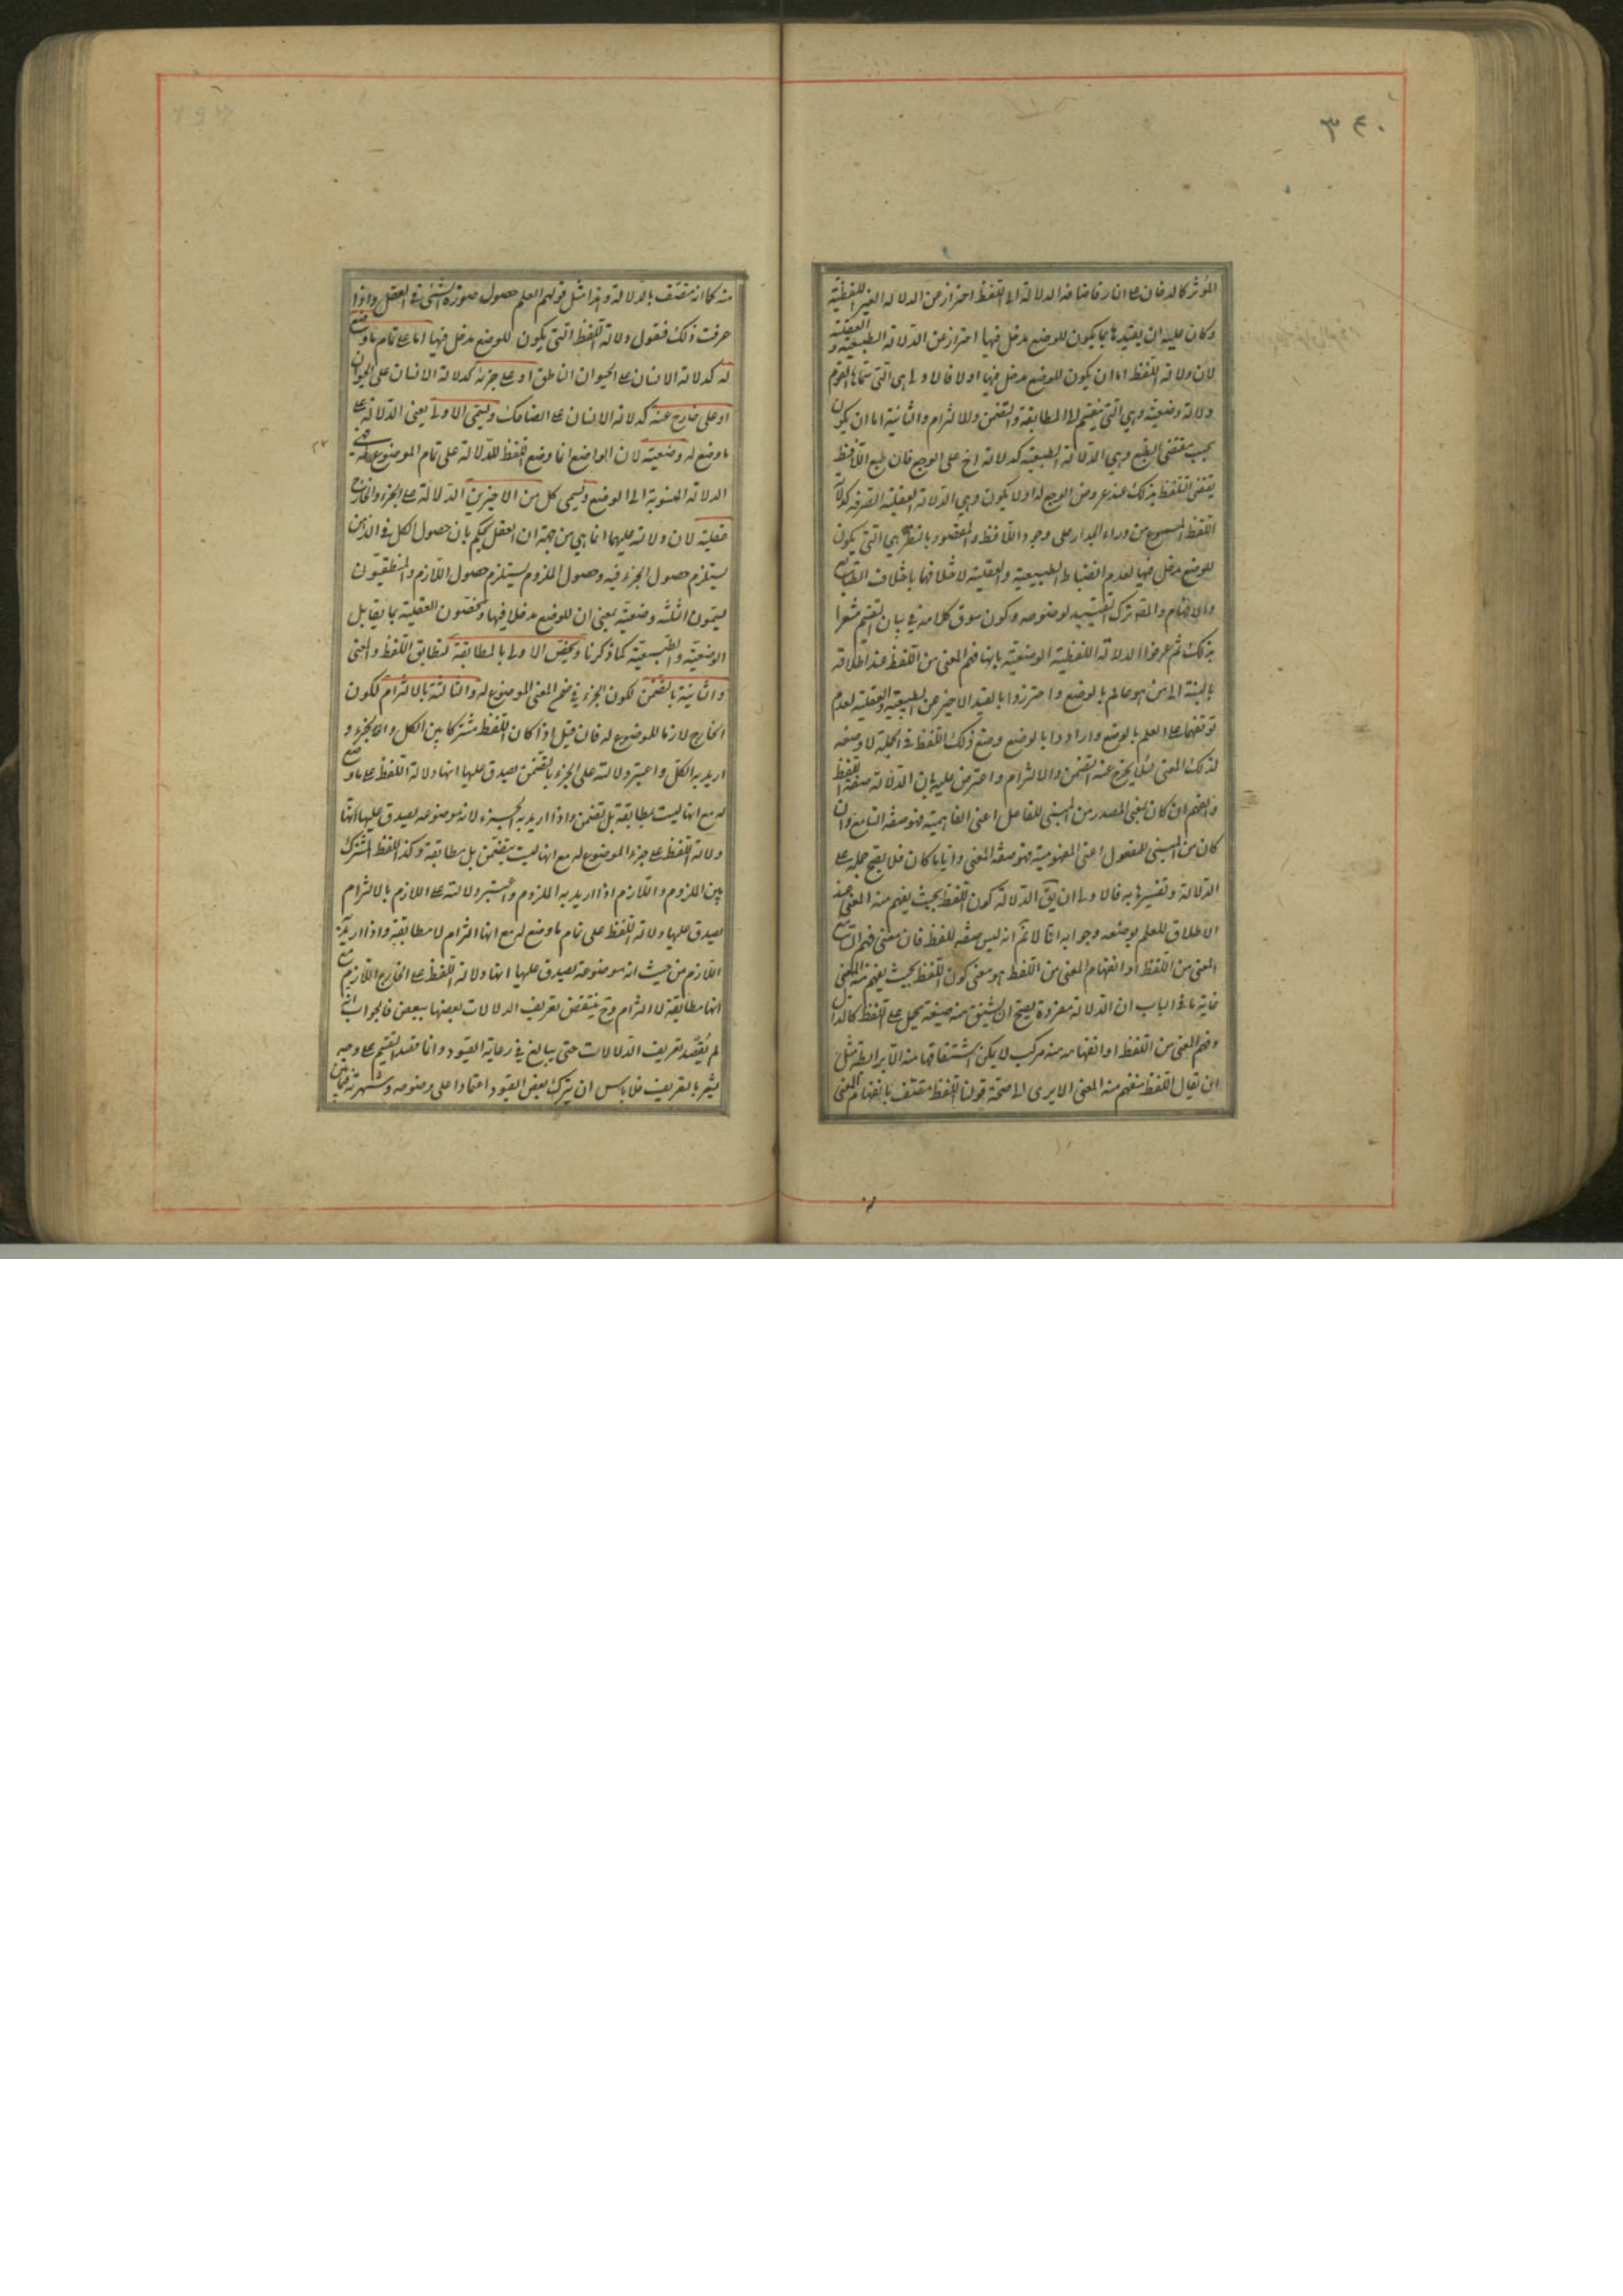 ٣٤٠
المؤثر كالدخان على النار فاضافه الدلالة الى اللفظ احتراز من الدلاله الغير اللفظية
وكان عليه ان يقيدها بما يكون للوضع مدخل فيها احترازا من الدلالة الطبيعية و العقلية
لان دلالة اللفظ اما ان يكون للوضع مدخل فيها او لا فالاولى هى التى سماها القوم
دلالة وضعية وهى التى ينقسم الى المطابقة والتضمن والالتزام والثانية اما ان يكون
بحسب مقتضى الطبع وهى الدلالة الطبيعية كدلالة اخ على الوجع فان طبع اللافظ
يقتضى التلفظ بذلك عند عروض الوجع له او لا يكون وهى الدلالة العقلية الصرفه كدلالة
اللفظ المسموع من وراء الجدار على وجود اللافظ والمقصود بالنظر هى التى يكون
للوضع مدخل فيها لعدم انضباط الطبيعية والعقلية لاختلافها باختلاف الطبايع
والافهام والمصه ترك التقييد لوضوحه وكون سوق كلامه فى بيان التقسيم مشعرا
بذلك ثم عرفوا الدلالة اللفظية الوضعية بانها فهم المعنى من اللفظ عند اطلاقه
بالنسبة الى من هو عالم بالوضع واحترزوا بالقيد الاخير عن الطبيعية والعقلية لعدم
توقفهما على العلم بالوضع وارادوا بالوضع وضع ذلك اللفظ فى الجملة لا وضعه
لذلك المعنى لئلا يخرج عنه التضمن والالتزام واعترض عليه بان الدلالة صفة اللفظ
والفهم ان كان بمعنى المصدر من المبنى للفاعل اعنى الفاهمية فهو صفة السامع وان
كان من المبنى للمفعول اعنى المفهومية فهو صفة المعنى وايا ما كان فلا يصح حمله على
الدلالة وتفسيرها به فالاولى ان يق الدلالة كون اللفظ بحيث يفهم منه المعنى عند
الاطلاق للعلم بوضعه وجوابه انا لا نم انه ليس صفة للفظ فان معنى فهم السامع
المعنى من اللفظ او انفهام المعنى من اللفظ هو معنى كون اللفظ بحيث يفهم منه المعنى
غاية ما فى الباب ان الدلالة مفردة يصح ان يشتق منه صيغة تحمل على اللفظ كالدال
وفهم المعنى من اللفظ او انفهامه منه مركب لا يمكن اشتقاقها منه الا برابطة مثل
ان يقال اللفظ منفهم منه المعنى الا يرى الى صحة قولنا اللفظ متصف بانفهام المعنى
منه كما انه متصف بالدلالة وهذا مثل قولهم العلم حصول صورة الشئ فى العقل واذا
عرفت ذلك فنقول دلالة اللفظ التى يكون للوضع مدخل فيها اما على تمام ما وضع
له كدلالة الانسان على الحيوان الناطق او على جزئه كدلالة الانسان على الحيوان
او على خارج عنه كدلالة الانسان على الضاحك وتسمى الاولى يعنى الدلالة على
ما وضع له وضعية لان الواضع انما وضع اللفظ للدلالة على تمام الموضوع له فهى
الدلالة المنسوبة الى الوضع وتسمى كل من الاخيرين الدلالة على الجزء والخارج
عقلية لان دلالة عليهما انما هى من جهة ان العقل يحكم بان حصول الكل فى الذهن
يستلزم حصول الجزء فيه وحصول الملزوم يستلزم حصول اللازم والمنطقيون
يسمون الثلثة وضعية بمعنى ان للوضع مدخلا فيها ويخصون العقلية بما يقابل
الوضعية والطبيعية كما ذكرنا وتختص الاولى بالمطابقة لتطابق اللفظ والمعنى
والثانية بالتضمن لكون الجزء فى ضمن المعنى الموضوع له والثالثة بالالتزام لكون
الخارج لازما للموضوع له فان قيل اذا كان اللفظ مشتركا بين الكل والجزء و
اريد به الكل واعتبر دلالته على الجزء بالتضمن يصدق عليها انها دلالة اللفظ على ما وضع
له مع انها ليست بمطابقة بل تضمن واذا اريد به الجزء لانه موضوعه يصدق عليها انها
دلالة اللفظ على جزء الموضوع له مع انها ليست بتضمن بل مطابقة وكذا اللفظ المشترك
بين الملزوم واللازم اذا اريد به الملزوم واعتبر دلالته على اللازم بالالتزام
يصدق عليها دلالة اللفظ على تمام ما وضع له مع انها التزام لا مطابقة واذا اريد به
اللازم من حيث انه موضوعه يصدق عليها انها دلالة اللفظ على الخارج اللازم مع
انها مطابقة لا التزام وح ينتقض تعريف الدلالات بعضها ببعض فالجواب انه
لم يقصد تعريف الدلالات حتى يبالغ فى رعاية القيود وانما قصد التقسيم على وجه
يشعر بالتعريف فلا باس ان يترك بعض القيود اعتمادا على وضوحه وشهرته